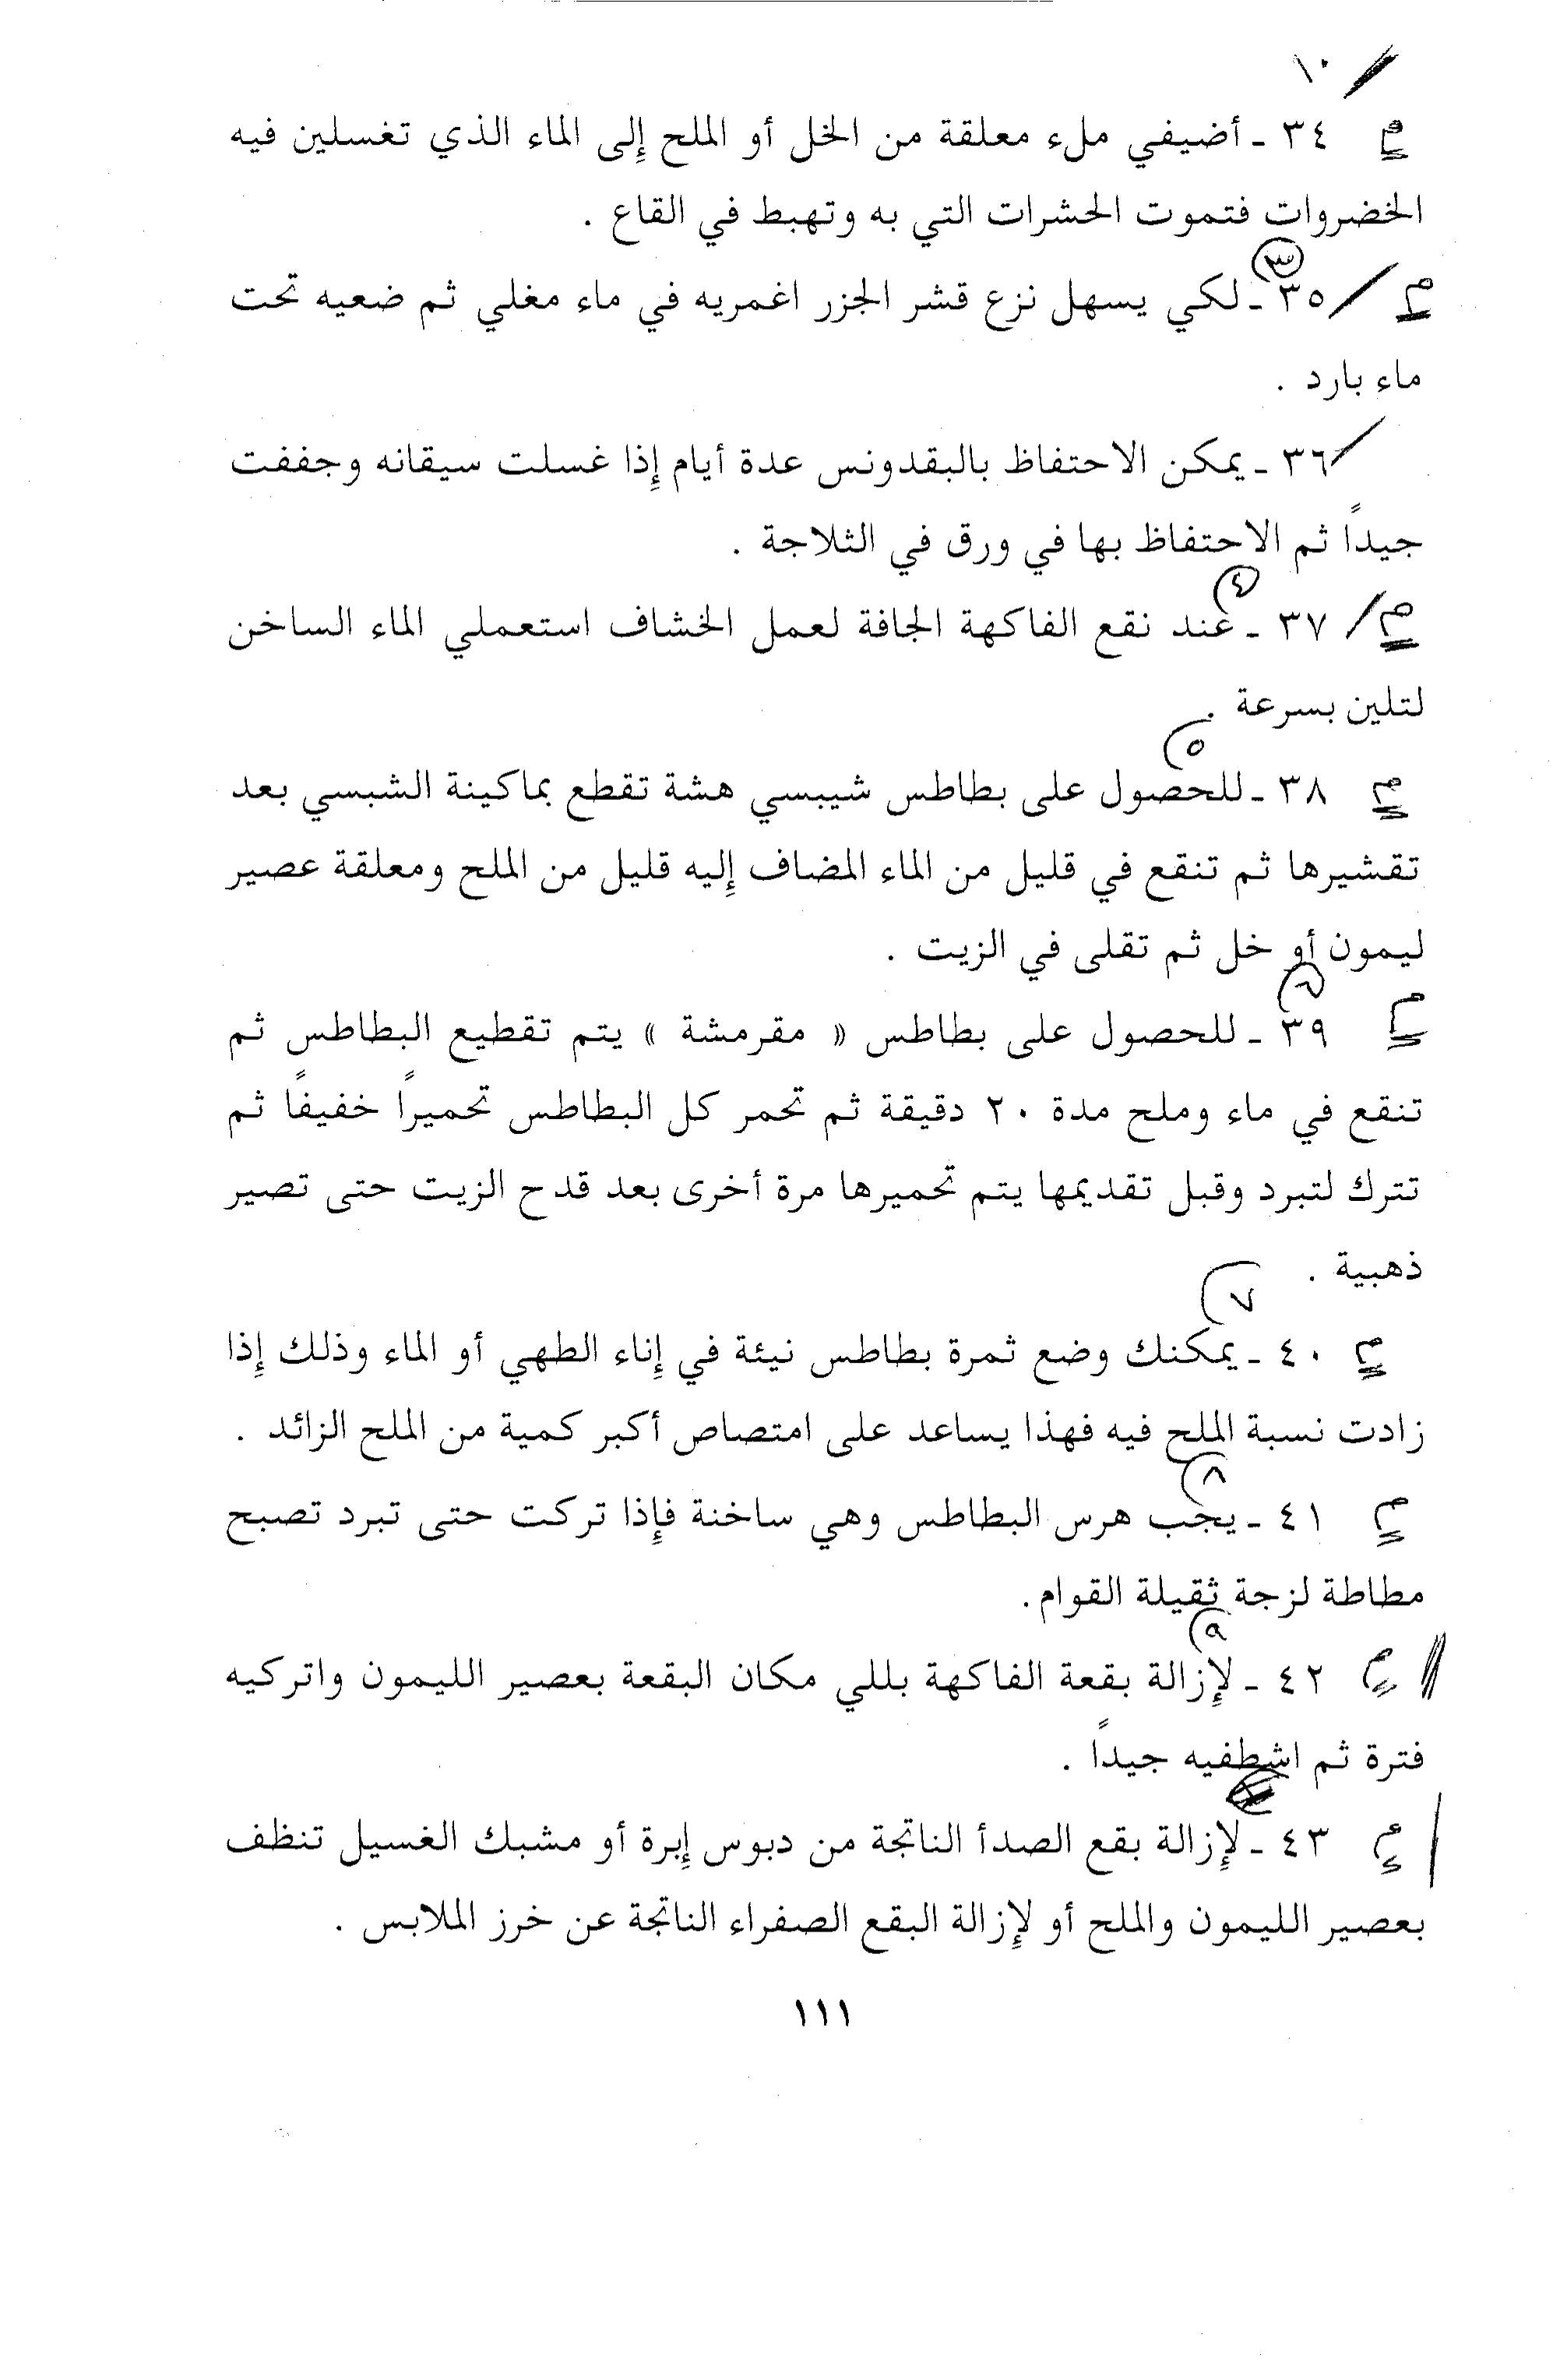 ١٠
م ٣٤ - أضيفي ملء معلقة من الخل أو الملح إلى الماء الذي تغسلين فيه
الخضروات فتموت الحشرات التي به وتهبط في القاع .
٣
م ٣٥ - لكي يسهل نزع قشر الجزر اغمريه في ماء مغلي ثم ضعيه تحت
ماء بارد .
٣٦ - يمكن الاحتفاظ بالبقدونس عدة أيام إذا غسلت سيقانه وجففت
جيداً ثم الاحتفاظ بها في ورق في الثلاجة .
٤
م ٣٧ - عند نقع الفاكهة الجافة لعمل الخشاف استعملي الماء الساخن
لتلين بسرعة .
٥
م ٣٨ - للحصول على بطاطس شيبسي هشة تقطع بماكينة الشبسي بعد
تقشيرها ثم تنقع في قليل من الماء المضاف إليه قليل من الملح ومعلقة عصير
ليمون أو خل ثم تقلى في الزيت .
٦
م ٣٩ - للحصول على بطاطس « مقرمشة » يتم تقطيع البطاطس ثم
تنقع في ماء وملح مدة ٢٠ دقيقة ثم تحمر كل البطاطس تحميراً خفيفًا ثم
تترك لتبرد وقبل تقديمها يتم تحميرها مرة أخرى بعد قدح الزيت حتى تصير
ذهبية .
٧
م ٤٠ - يمكنك وضع ثمرة بطاطس نيئة في إناء الطهي أو الماء وذلك إذا
زادت نسبة الملح فيه فهذا يساعد على امتصاص أكبر كمية من الملح الزائد .
٨
م ٤١ - يجب هرس البطاطس وهي ساخنة فإذا تركت حتى تبرد تصبح
مطاطة لزجة ثقيلة القوام.
٩
م ٤٢ - لإزالة بقعة الفاكهة بللي مكان البقعة بعصير الليمون واتركيه
فترة ثم اشطفيه جيداً .
م ٤٣ - لإزالة بقع الصدأ الناتجة من دبوس إبرة أو مشبك الغسيل تنظف
بعصير الليمون والملح أو لإزالة البقع الصفراء الناتجة عن خرز الملابس .
١١١